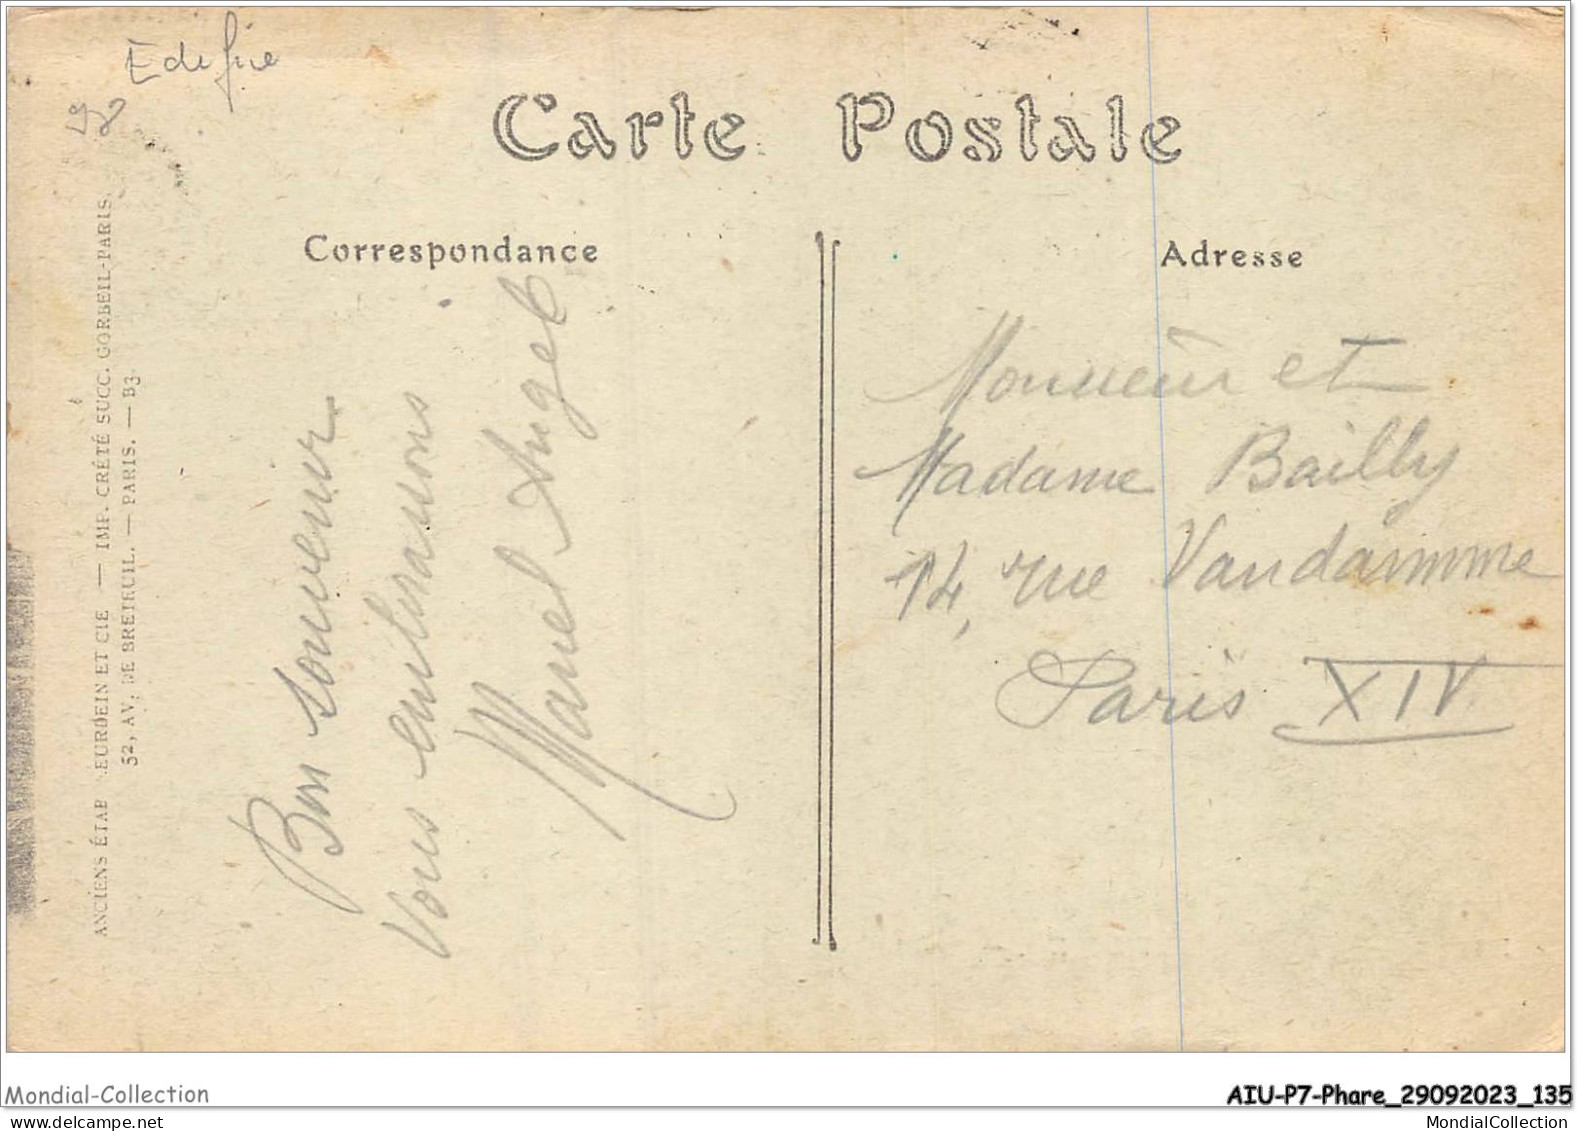 Edifice
98
Carte Postale
Correspondance
Adresse
ANCIENS ÉTAB NEURDEIN ET CIE — IMP. CRÉTÉ SUCC. CORBEIL-PARIS.
52, AV. DE BRETEUIL. — PARIS. — B3.
Bon souvenir
Vous embrassons
Manel Angel
Monsieur et
Madame Bailly
14, rue Vandamme
Paris XIV
Mondial-Collection
AIU-P7-Phare_29092023_135
mondial-collection.com
MondialCollection